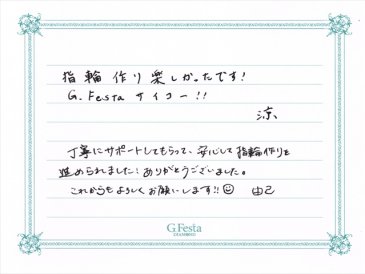 指輪作り楽しかったです!
G.Festa サイコー!!
涼
丁寧にサポートしてもらって、安心して指輪作りを
進められました!ありがとうございました。
これからもよろしくお願いします!!☺ 由己
G.Festa
DIAMOND